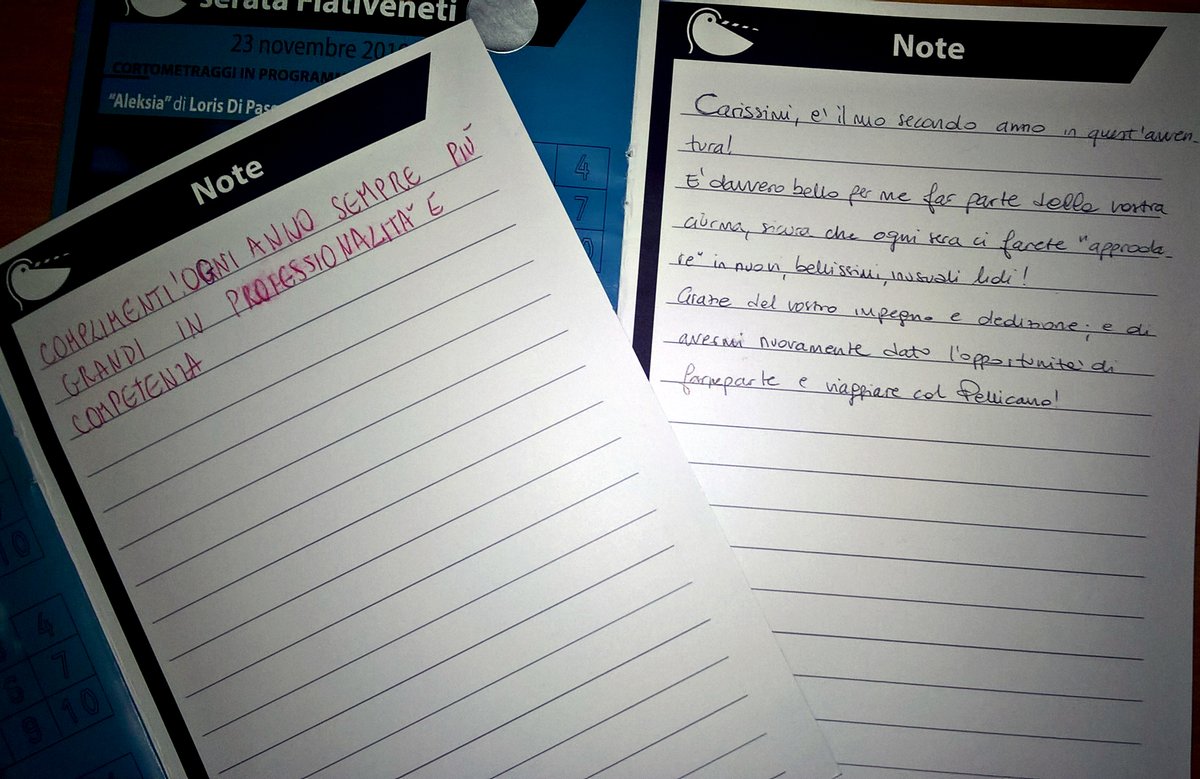 serata FiatiVeneti
23 novembre 201
CORTOMETRAGGI IN PROGRAM
"Aleksia" di Loris Di Pas
4
7
Note
COMPLIMENTI! OGNI ANNO SEMPRE PIÙ
GRANDI IN PROFESSIONALITÀ E
COMPETENZA
10
4
7
9 10
Note
Carissimi, e' il mio secondo anno in quest'avven-
tura!
E' davvero bello per me far parte della vostra
ciurma, sicura che ogni sera ci farete "approda-
re" in nuovi, bellissimi, inusuali lidi!
Grazie del vostro impegno e dedizione; e di
avermi nuovamente dato l'opportunita' di
farne parte e viaggiare col Pellicano!